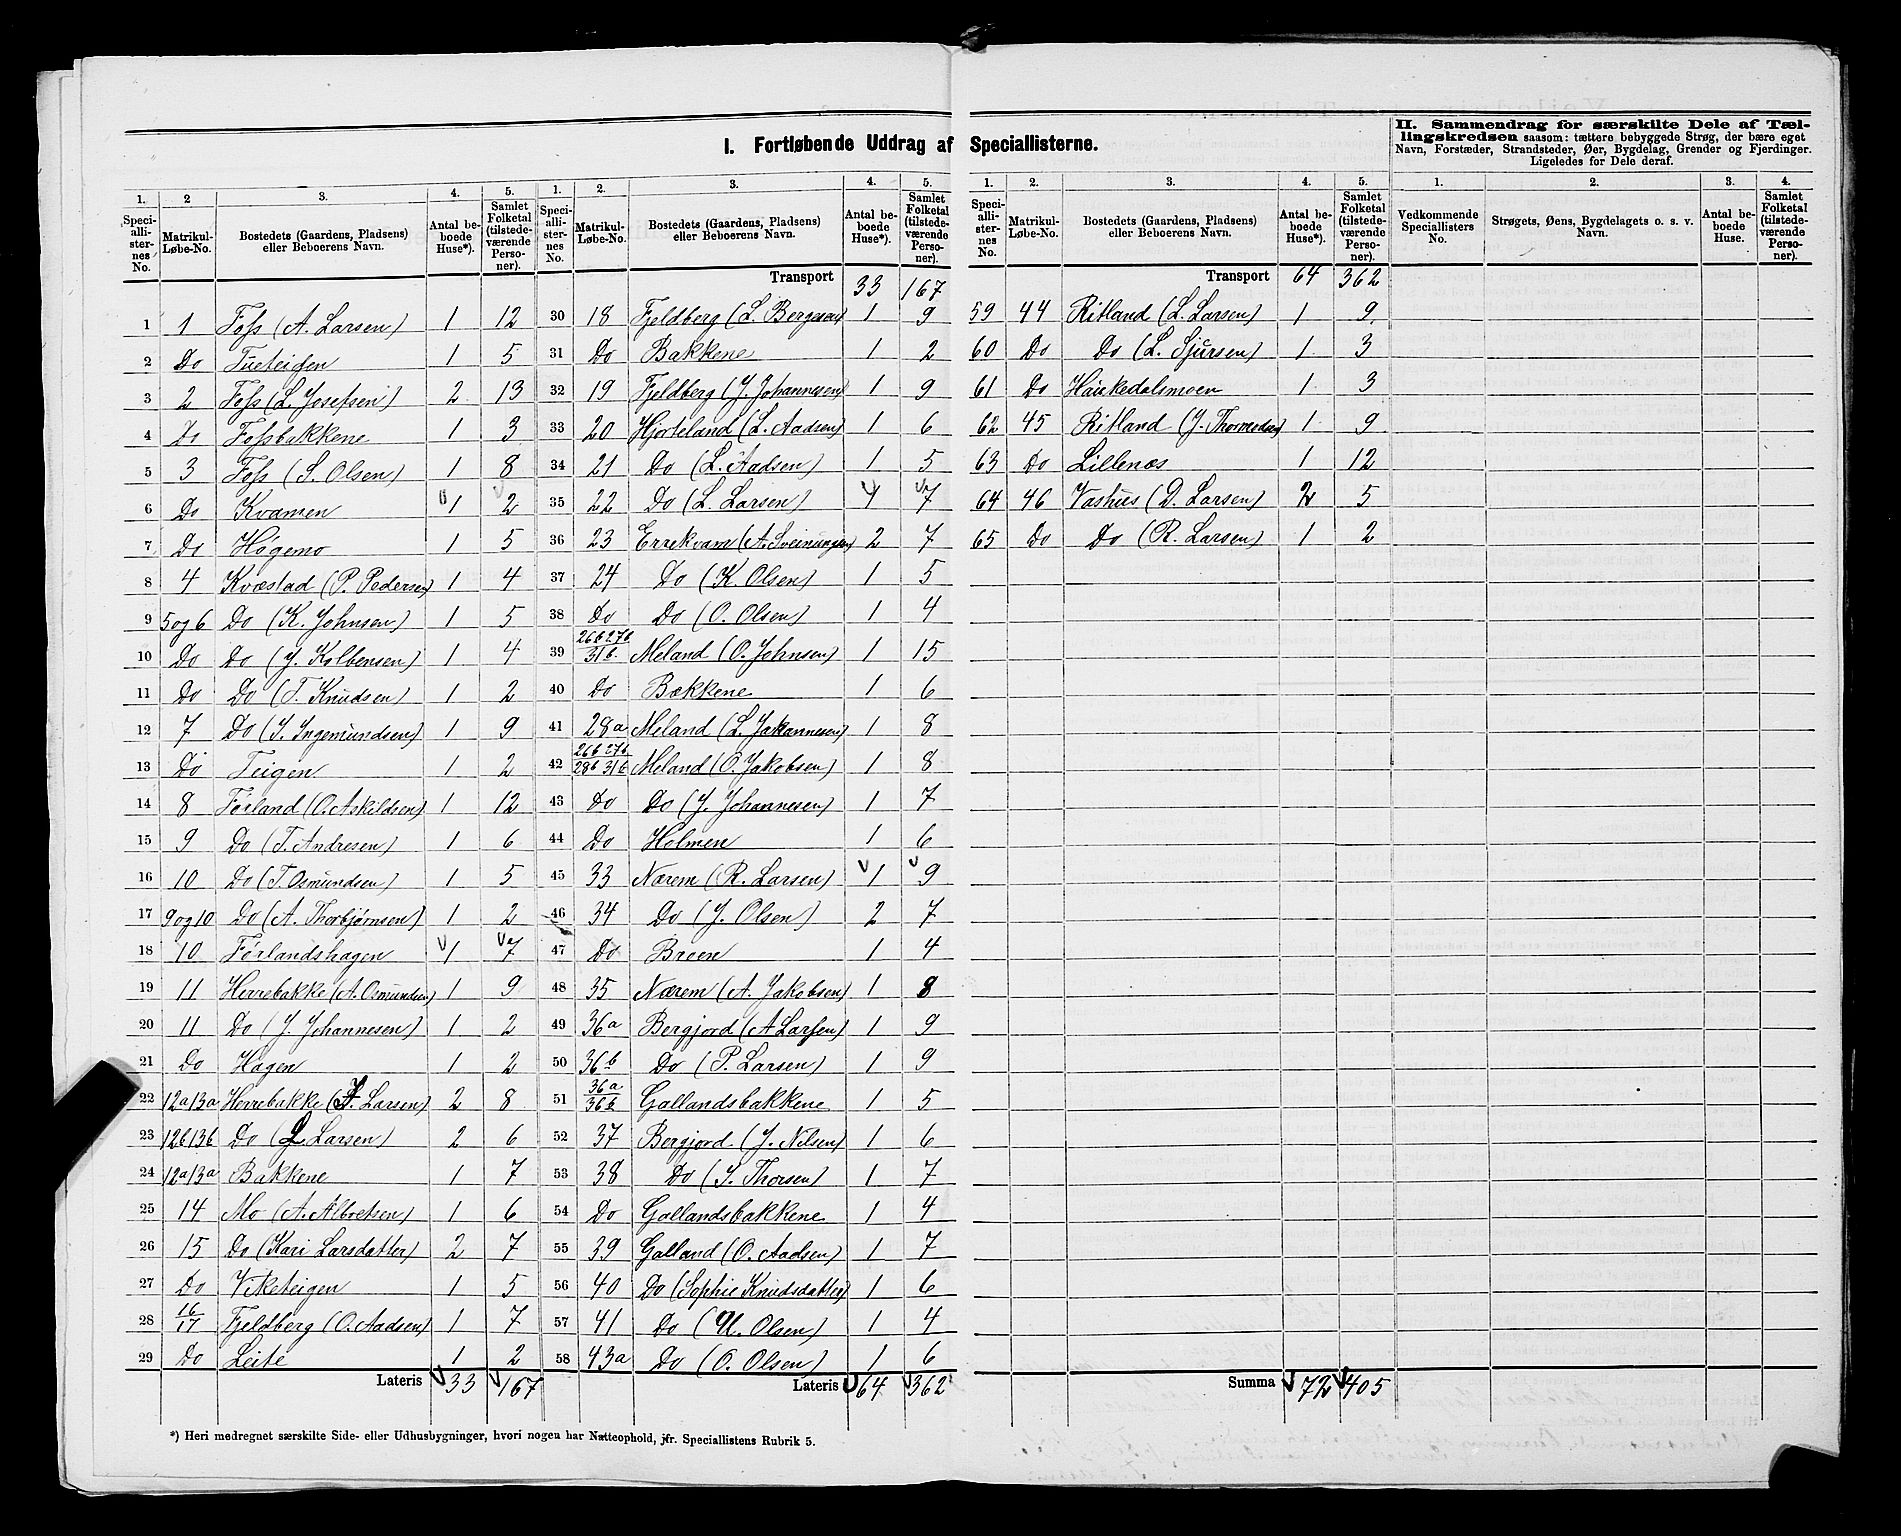 I. Fortløbende Uddrag af Speciallisterne.
II. Sammendrag for særskilte Dele af Tællingskredsen saasom: tættere bebyggede Strøg, der bære eget
Navn, Forstæder, Strandsteder, Øer, Bygdelag, Grender og Fjerdinger.
Ligeledes for Dele deraf.
1. 2 3. 4. 5.
Speciallisternes No. Matrikul-Løbe-No. Bostedets (Gaardens, Pladsens) eller Beboerens Navn. Antal beboede Huse*). Samlet Folketal (tilstedeværende Personer).
1 1 Foss (A. Larsen) 1 12
2 Do Tueteigen 1 5
3 2 Foss (L. Josefsen) 2 13
4 Do Fossbakkene 1 3
5 3 Foss (S. Olsen) 1 8
6 Do Kvamen 1 2
7 Do Høgemo 1 5
8 4 Kvæstad (P. Pedersen) 1 4
9 5og6 Do (K. Johnsen) 1 5
10 Do Do (J. Kolbensen) 1 4
11 Do Do (T. Knudsen) 1 2
12 7 Do (J. Ingemundsen) 1 9
13 Do Teigen 1 2
14 8 Førland (O. Askildsen) 1 12
15 9 Do (T. Andresen) 1 6
16 10 Do (T. Osmundsen) 1 5
17 9og10 Do (A. Thorbjørnsen) 1 2
18 10 Førlandshagen 1 7
19 11 Herrebakke (A. Osmundsen) 1 9
20 11 Do (J. Johannesen) 1 2
21 Do Hagen 1 2
22 12a13a Herrebakke (J. Larsen) 2 8
23 12b13b Do (L Larsen) 2 6
24 12a13a Bakkene 1 7
25 14 Mo (A. Albretsen) 1 6
26 15 Do (Kari Larsdatter) 2 7
27 Do Viketeigen 1 5
28 16/17 Fjeldberg (O. Aadsen) 1 7
29 Do Leite 1 2
Lateris 33 167
1. 2. 3. 4. 5.
Speciallisternes No. Matrikul-Løbe-No. Bostedets (Gaardens, Pladsens) eller Beboerens Navn. Antal beboede Huse*). Samlet Folketal (tilstedeværende Personer).
Transport 33 167
30 18 Fjeldberg (L. Bergesen) 1 9
31 Do Bakkene 1 2
32 19 Fjeldberg (J. Johannesen) 1 9
33 20 Hjorteland (L. Aadsen) 1 6
34 21 Do (L. Aadsen) 1 5
35 22 Do (L. Larsen) 1 7
36 23 Errekvam (A. Sveinungsen) 2 7
37 24 Do (K. Olsen) 1 5
38 Do Do (O. Olsen) 1 4
39 26b 27b/31b. Meland (O. Johnsen) 1 15
40 Do Bækkene 1 6
41 28a Meland (L. Johannesen) 1 8
42 26b 27b/28b 31b Meland (O. Jakobsen) 1 8
43 Do Do (J. Johannesen) 1 7
44 Do Holmen 1 6
45 33 Nærem (R. Larsen) 1 9
46 34 Do (J. Olsen) 2 7
47 Do Breen 1 4
48 35 Nærem (A. Jakobsen) 1 8
49 36a Bergjord (A Larsen) 1 9
50 36b Do (P. Larsen) 1 9
51 36a/36b Gallandsbakkene 1 5
52 37 Bergjord (J. Nilsen) 1 6
53 38 Do (J. Thorsen) 1 7
54 Do Gallandsbakkene 1 4
55 39 Galland (O. Aadsen) 1 7
56 40 Do (Sophie Knudsdatter) 1 6
57 41 Do (U. Olsen) 1 4
58 43a Do (O. Olsen) 1 6
Lateris 64 362
1. 2. 3. 4. 5.
Speciallisternes No. Matrikul-Løbe-No. Bostedets (Gaardens, Pladsens) eller Beboerens Navn. Antal beboede Huse*). Samlet Folketal (tilstedeværende Personer).
Transport 64 362
59 44 Ritland (L. Larsen) 1 9
60 Do Do (L. Sjursen) 1 3
61 Do Haukedalsmoen 1 3
62 45 Ritland (J. Thormodsen) 1 9
63 Do Lillenæs 1 12
64 46 Vashus (D. Larsen) 2 5
65 Do Do (R. Larsen) 1 2
Summa 72 405
1. 2. 3. 4.
Vedkommende Speciallisters No. Strøgets, Øens, Bygdelagets o. s. v. Navn. Antal beboede Huse. Samlet Folketal (tilstedeværende Personer).
*) Heri medregnet særskilte Side- eller Udhusbygninger, hvori nogen har Natteophold, jfr. Speciallistens Rubrik 5.